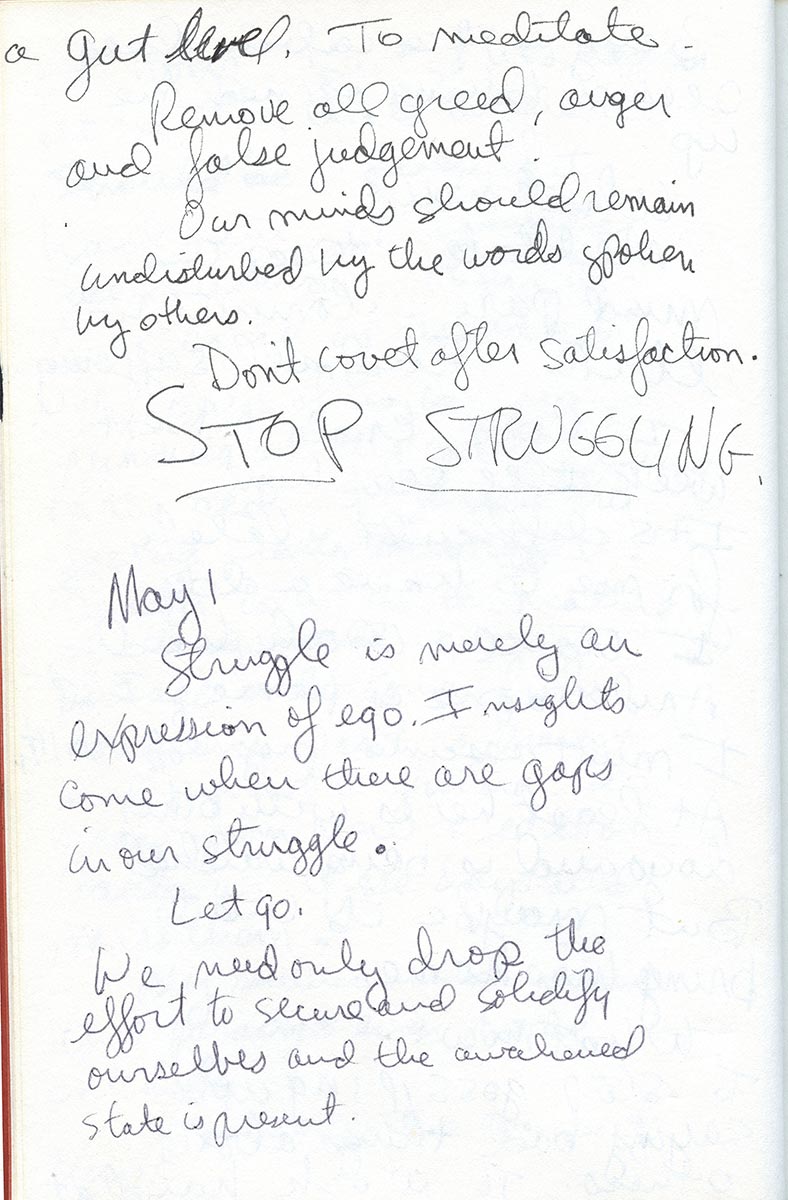 a gut level. To meditate.
Remove all greed, anger
and false judgement.
Our minds should remain
undisturbed by the words spoken
by others.
Don't covet after satisfaction.
STOP STRUGGLING.
May 1
Struggle is merely an
expression of ego. Insights
come when there are gaps
in our struggle.
Let go.
We need only drop the
effort to secure and solidify
ourselves and the awakened
state is present.